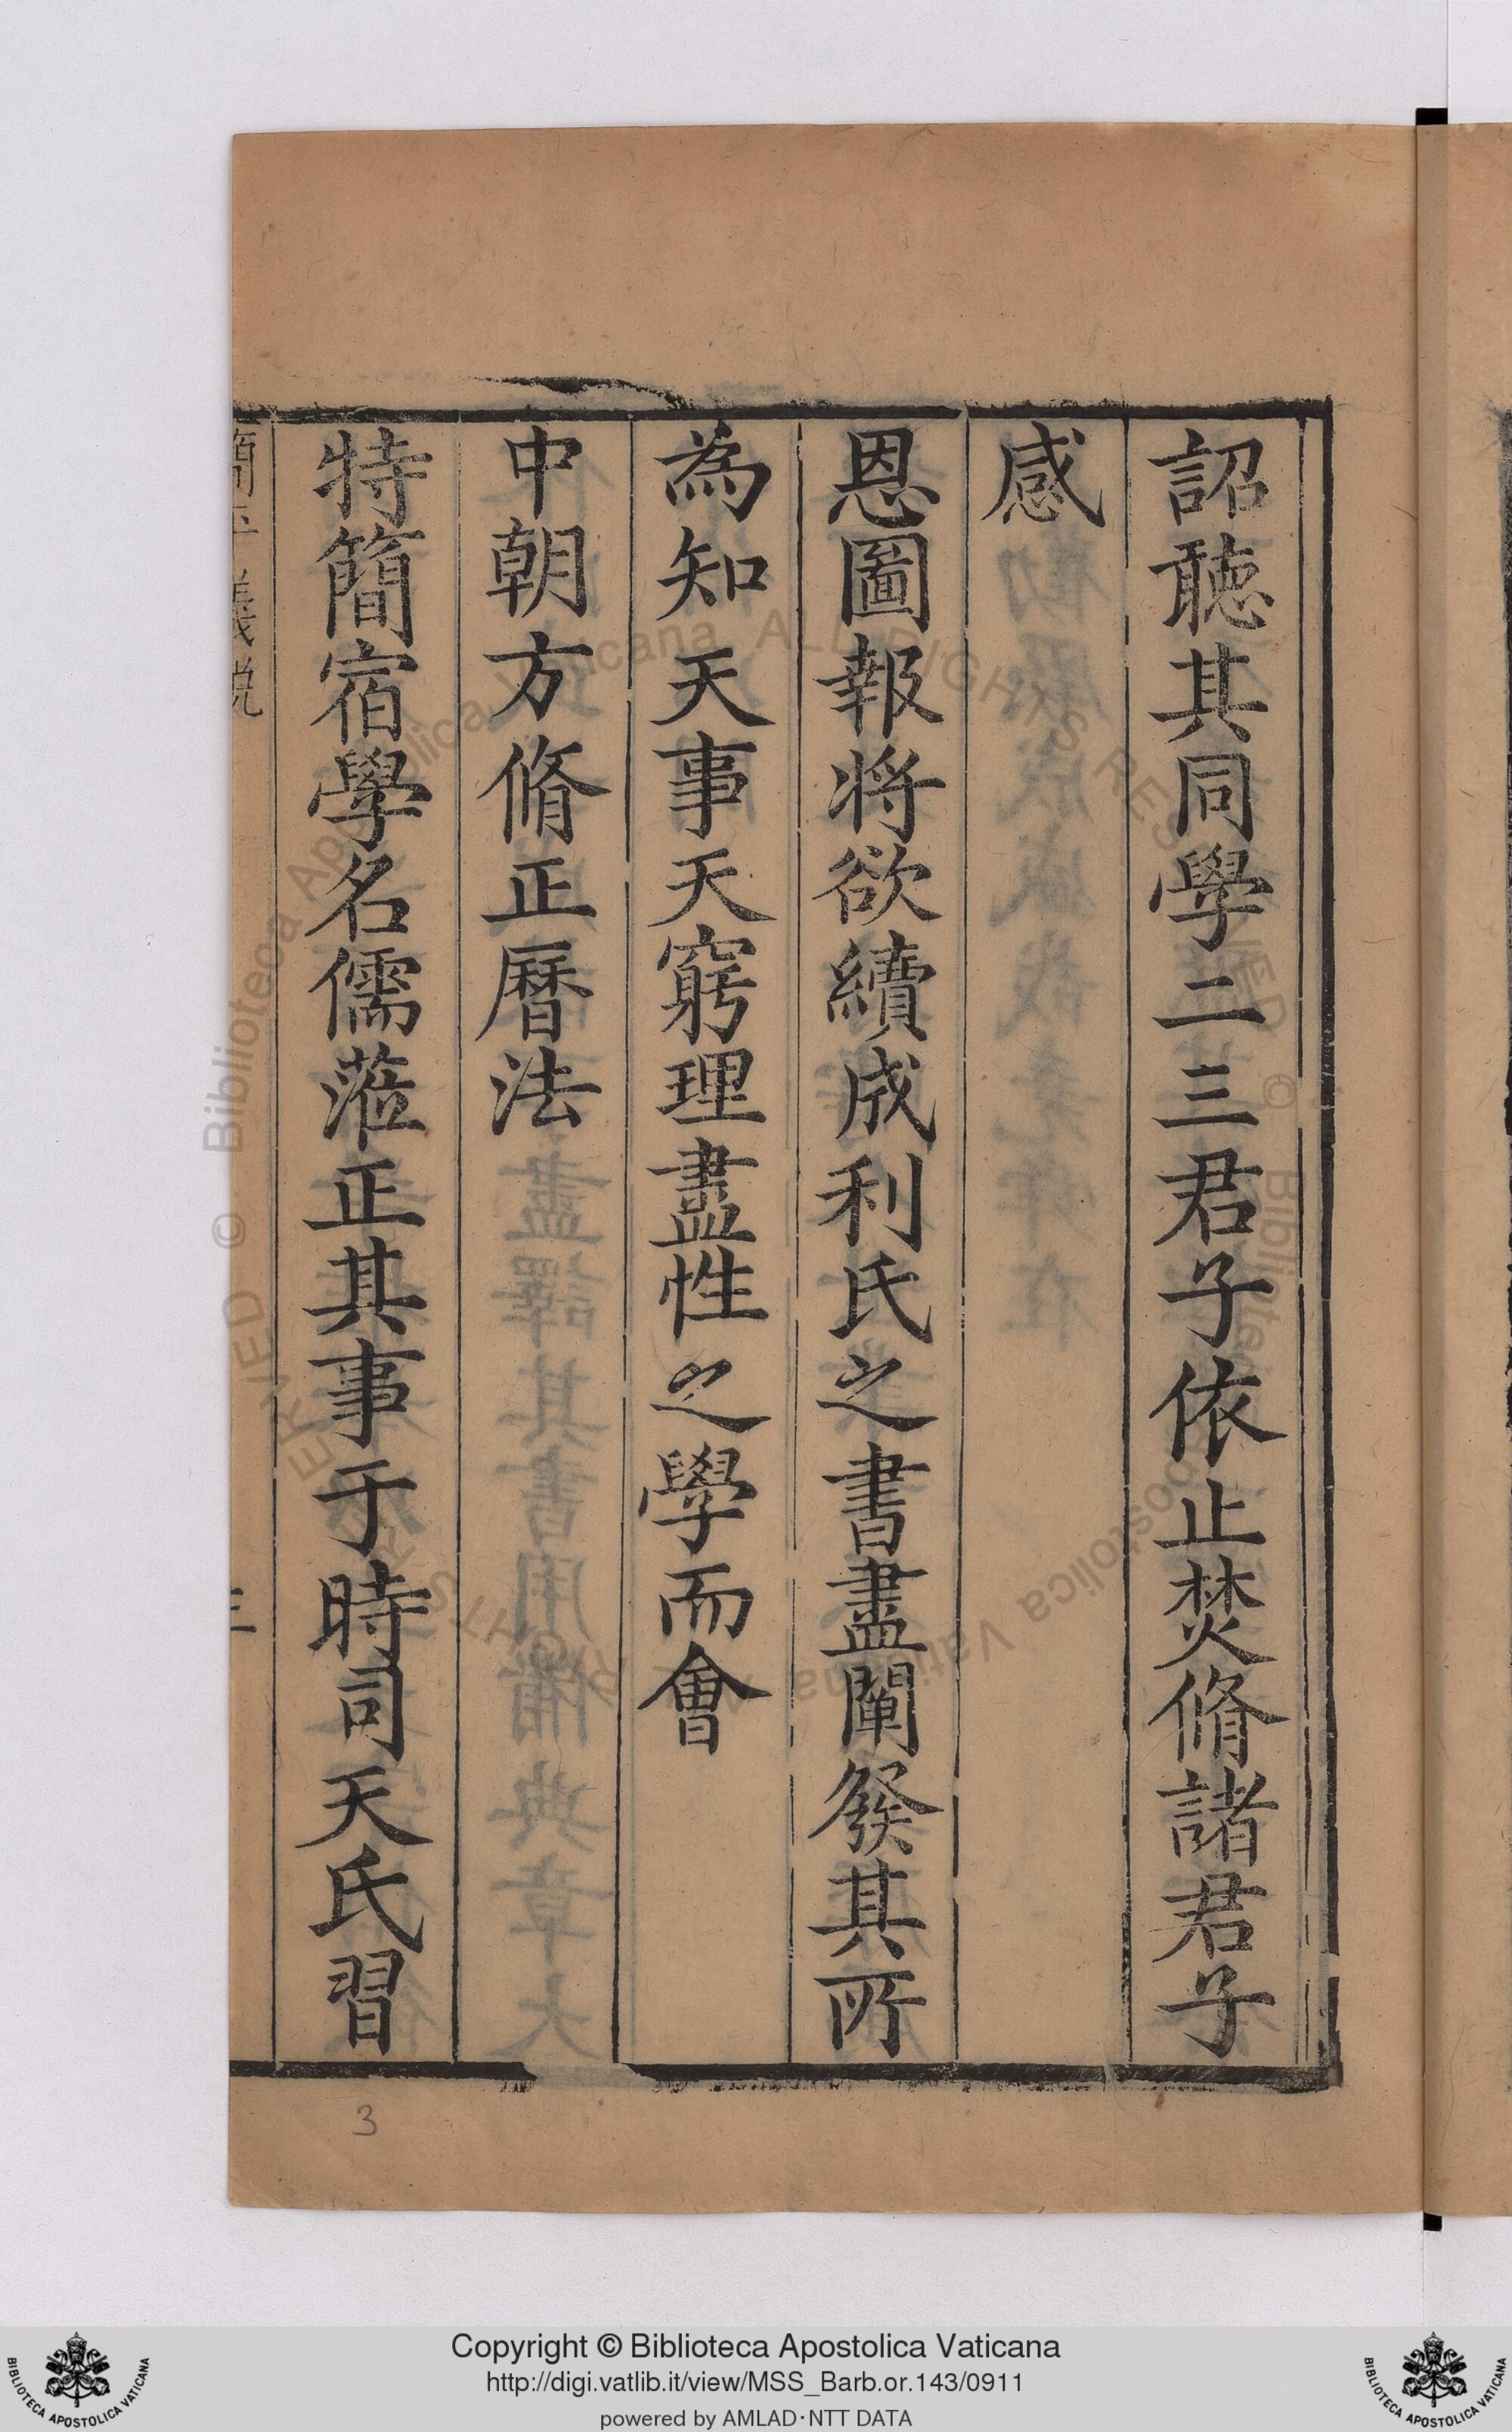 詔聽其同學二三君子依止焚脩諸君子
感
恩圖報将欲續成利氏之書盡闡發其所
為知天事天窮理盡性之學而會
中朝方脩正曆法
特簡宿學名儒蒞正其事于時司天氏習
簡平儀説
三
3
© Biblioteca Apostolica Vaticana ALL RIGHTS RESERVED
Copyright © Biblioteca Apostolica Vaticana
http://digi.vatlib.it/view/MSS_Barb.or.143/0911
powered by AMLAD·NTT DATA
BIBLIOTECA APOSTOLICA VATICANA
BIBLIOTECA APOSTOLICA VATICANA